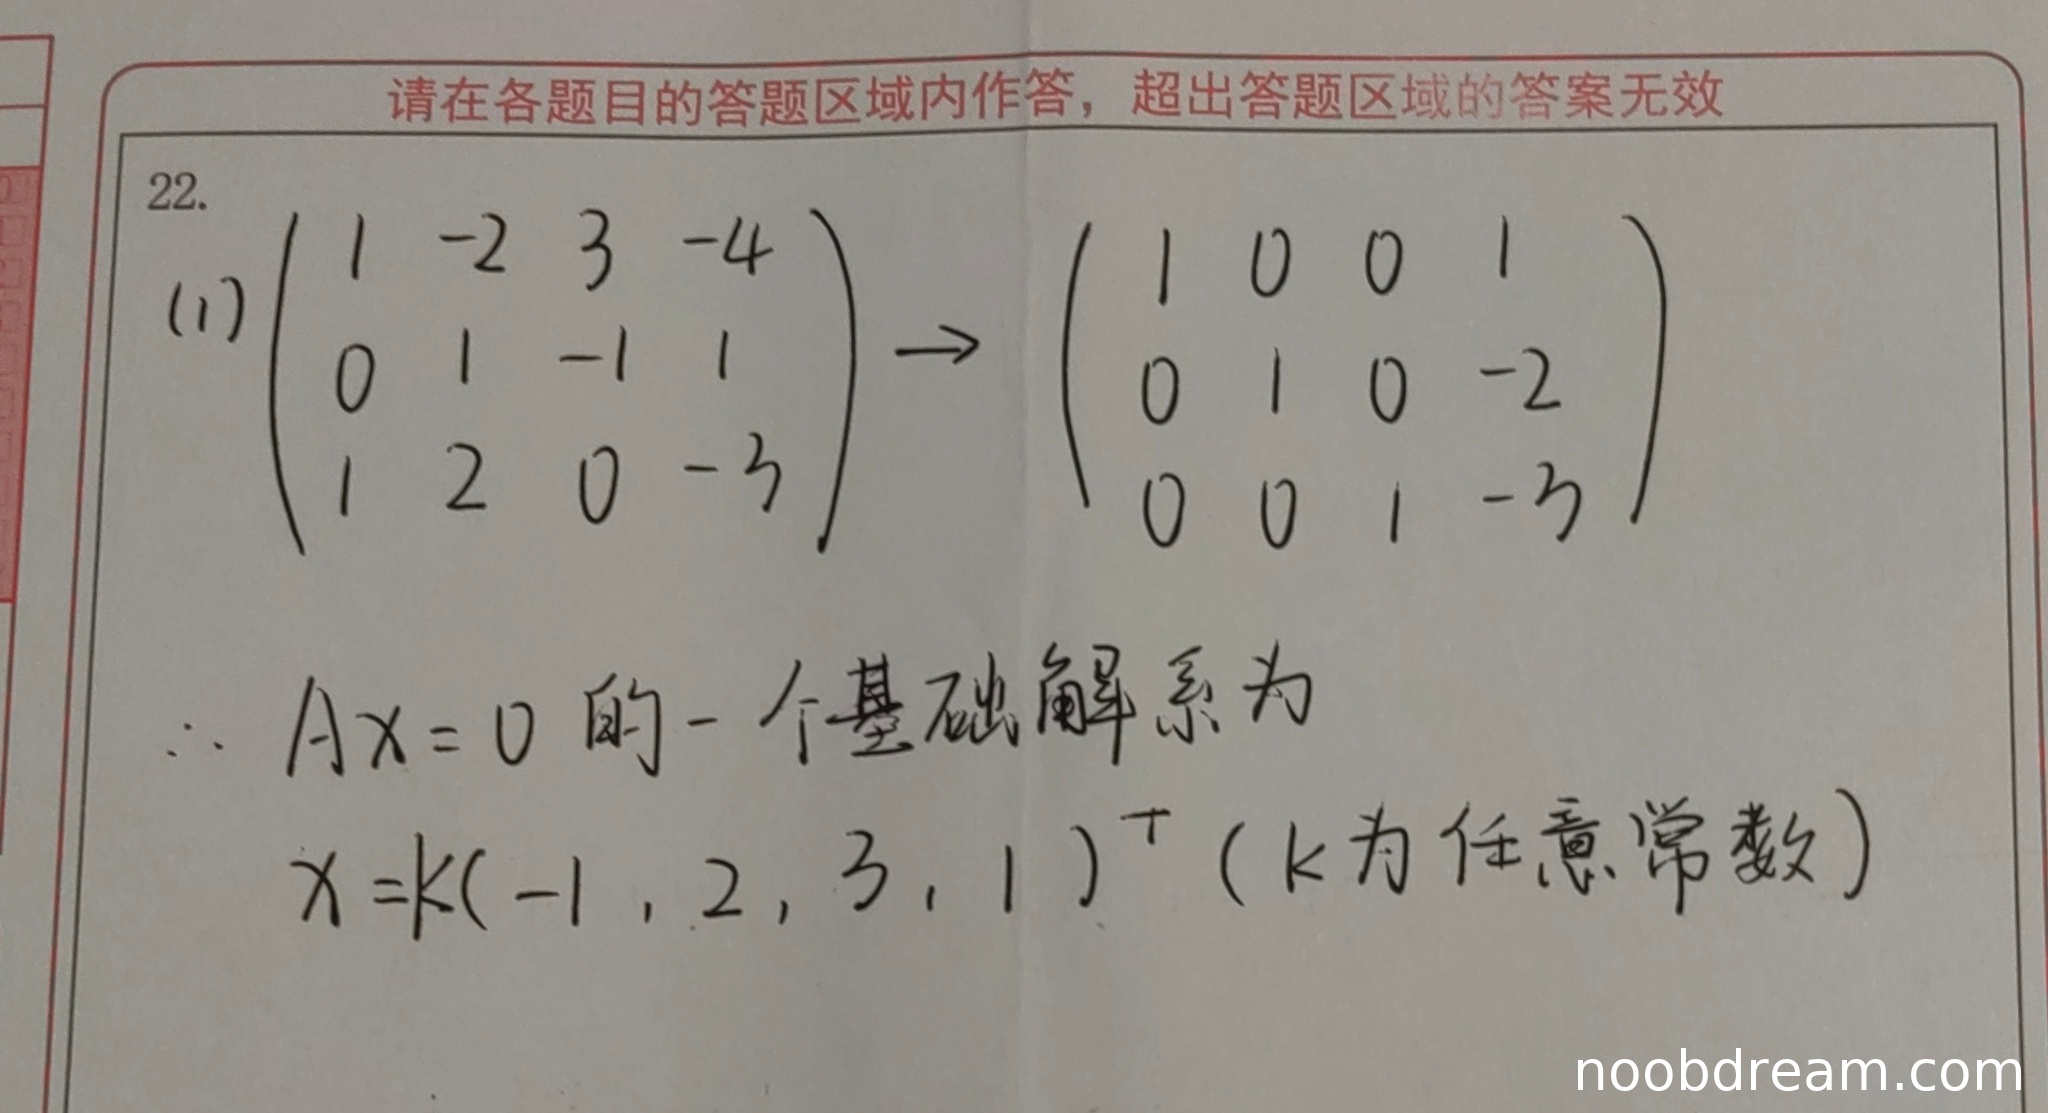 请在各题目的答题区域内作答，超出答题区域的答案无效
22.
(1) ( 1 -2 3 -4 ) → ( 1 0 0 1 )
( 0 1 -1 1 ) ( 0 1 0 -2 )
( 1 2 0 -3 ) ( 0 0 1 -3 )
∴ Ax=0 的一个基础解系为
x=k(-1, 2, 3, 1)ᵀ (k为任意常数)
noobdream.com